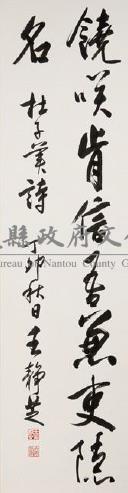 饒咲肯信吾兼吏隱
名 杜子美詩 丁卯秋日王靜芝
縣政府文
ureau
Nantou County G